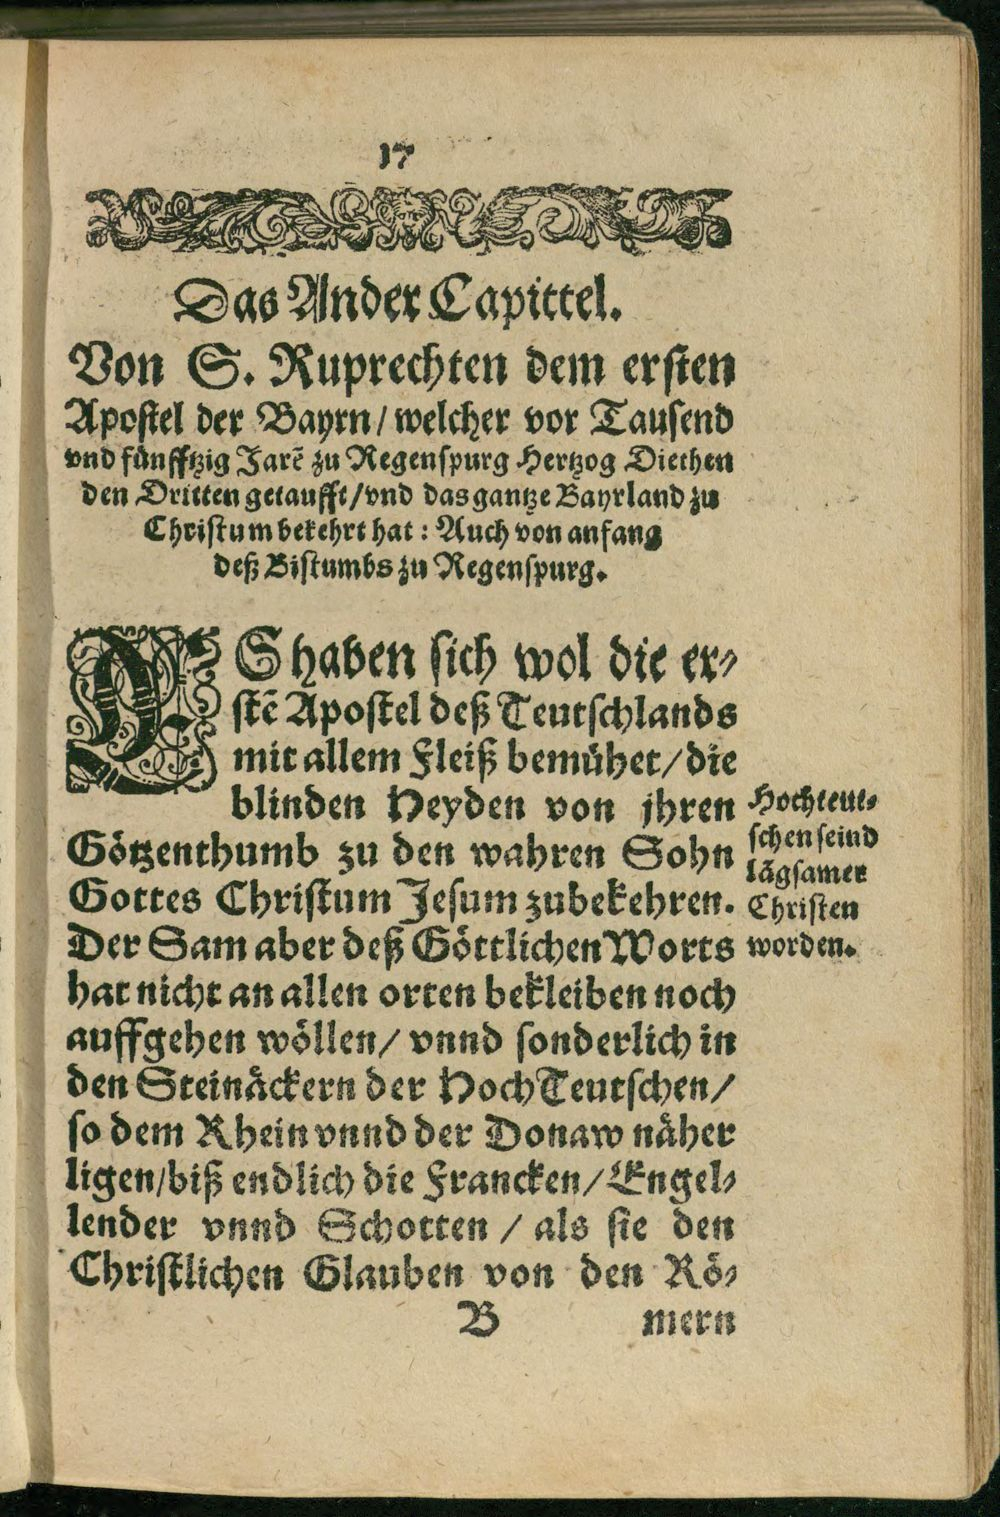 17
Das Ander Capittel.
Von S. Ruprechten dem ersten
Apostel der Bayrn/ welcher vor Tausend
vnd fünfftzig Jarẽ zu Regenspurg Hertzog Diethen
den Dritten getaufft/vnd das gantze Bayrland zu
Christum bekehrt hat: Auch von anfang
deß Bistumbs zu Regenspurg.
ES haben sich wol die er-
stẽ Apostel deß Teutschlands
mit allem Fleiß bemühet/die
blinden Heyden von jhren
Götzenthumb zu den wahren Sohn
Gottes Christum Jesum zubekehren.
Der Sam aber deß Göttlichen Worts
hat nicht an allen orten bekleiben noch
auffgehen wöllen/ vnnd sonderlich in
den Steinäckern der HochTeutschen/
so dem Rhein vnnd der Donaw näher
ligen/biß endlich die Francken/Engel-
lender vnnd Schotten / als sie den
Christlichen Glauben von den Rö-
B mern
Hochteut-
schen seind
lãgsamer
Christen
worden.